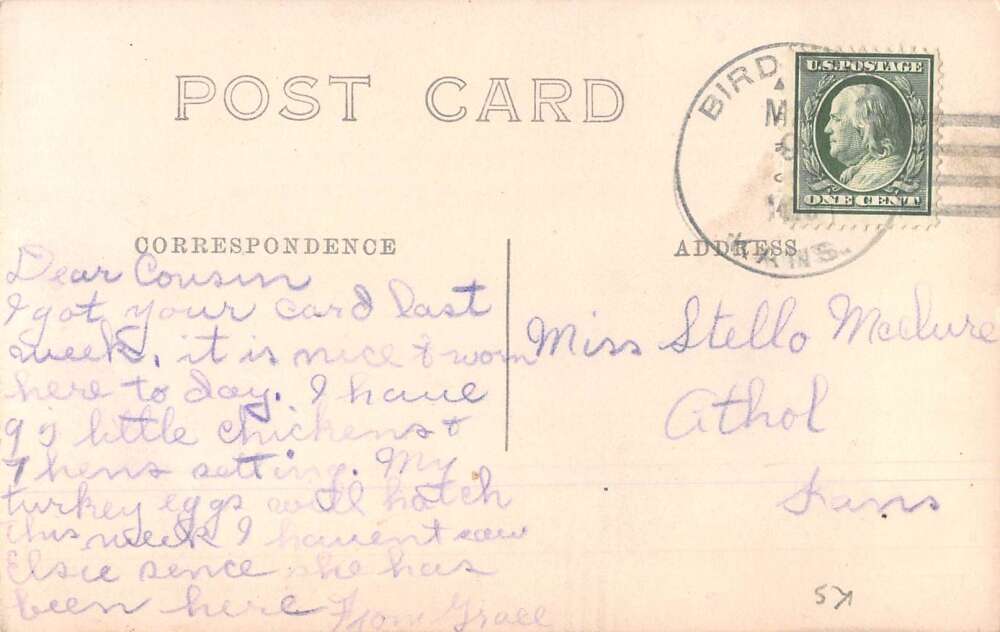 POST CARD
BIRD
M
KANS.
U.S.POSTAGE
ONE CENT
CORRESPONDENCE
ADDRESS
Dear Cousin
I got your card last
week, it is nice & worm
here to day. I have
99 little chickens &
7 hens setting. My
turkey eggs will hatch
this week I havent saw
Elsie sence she has
been here From Grace
Miss Stello McClure
Athol
Kans
KS